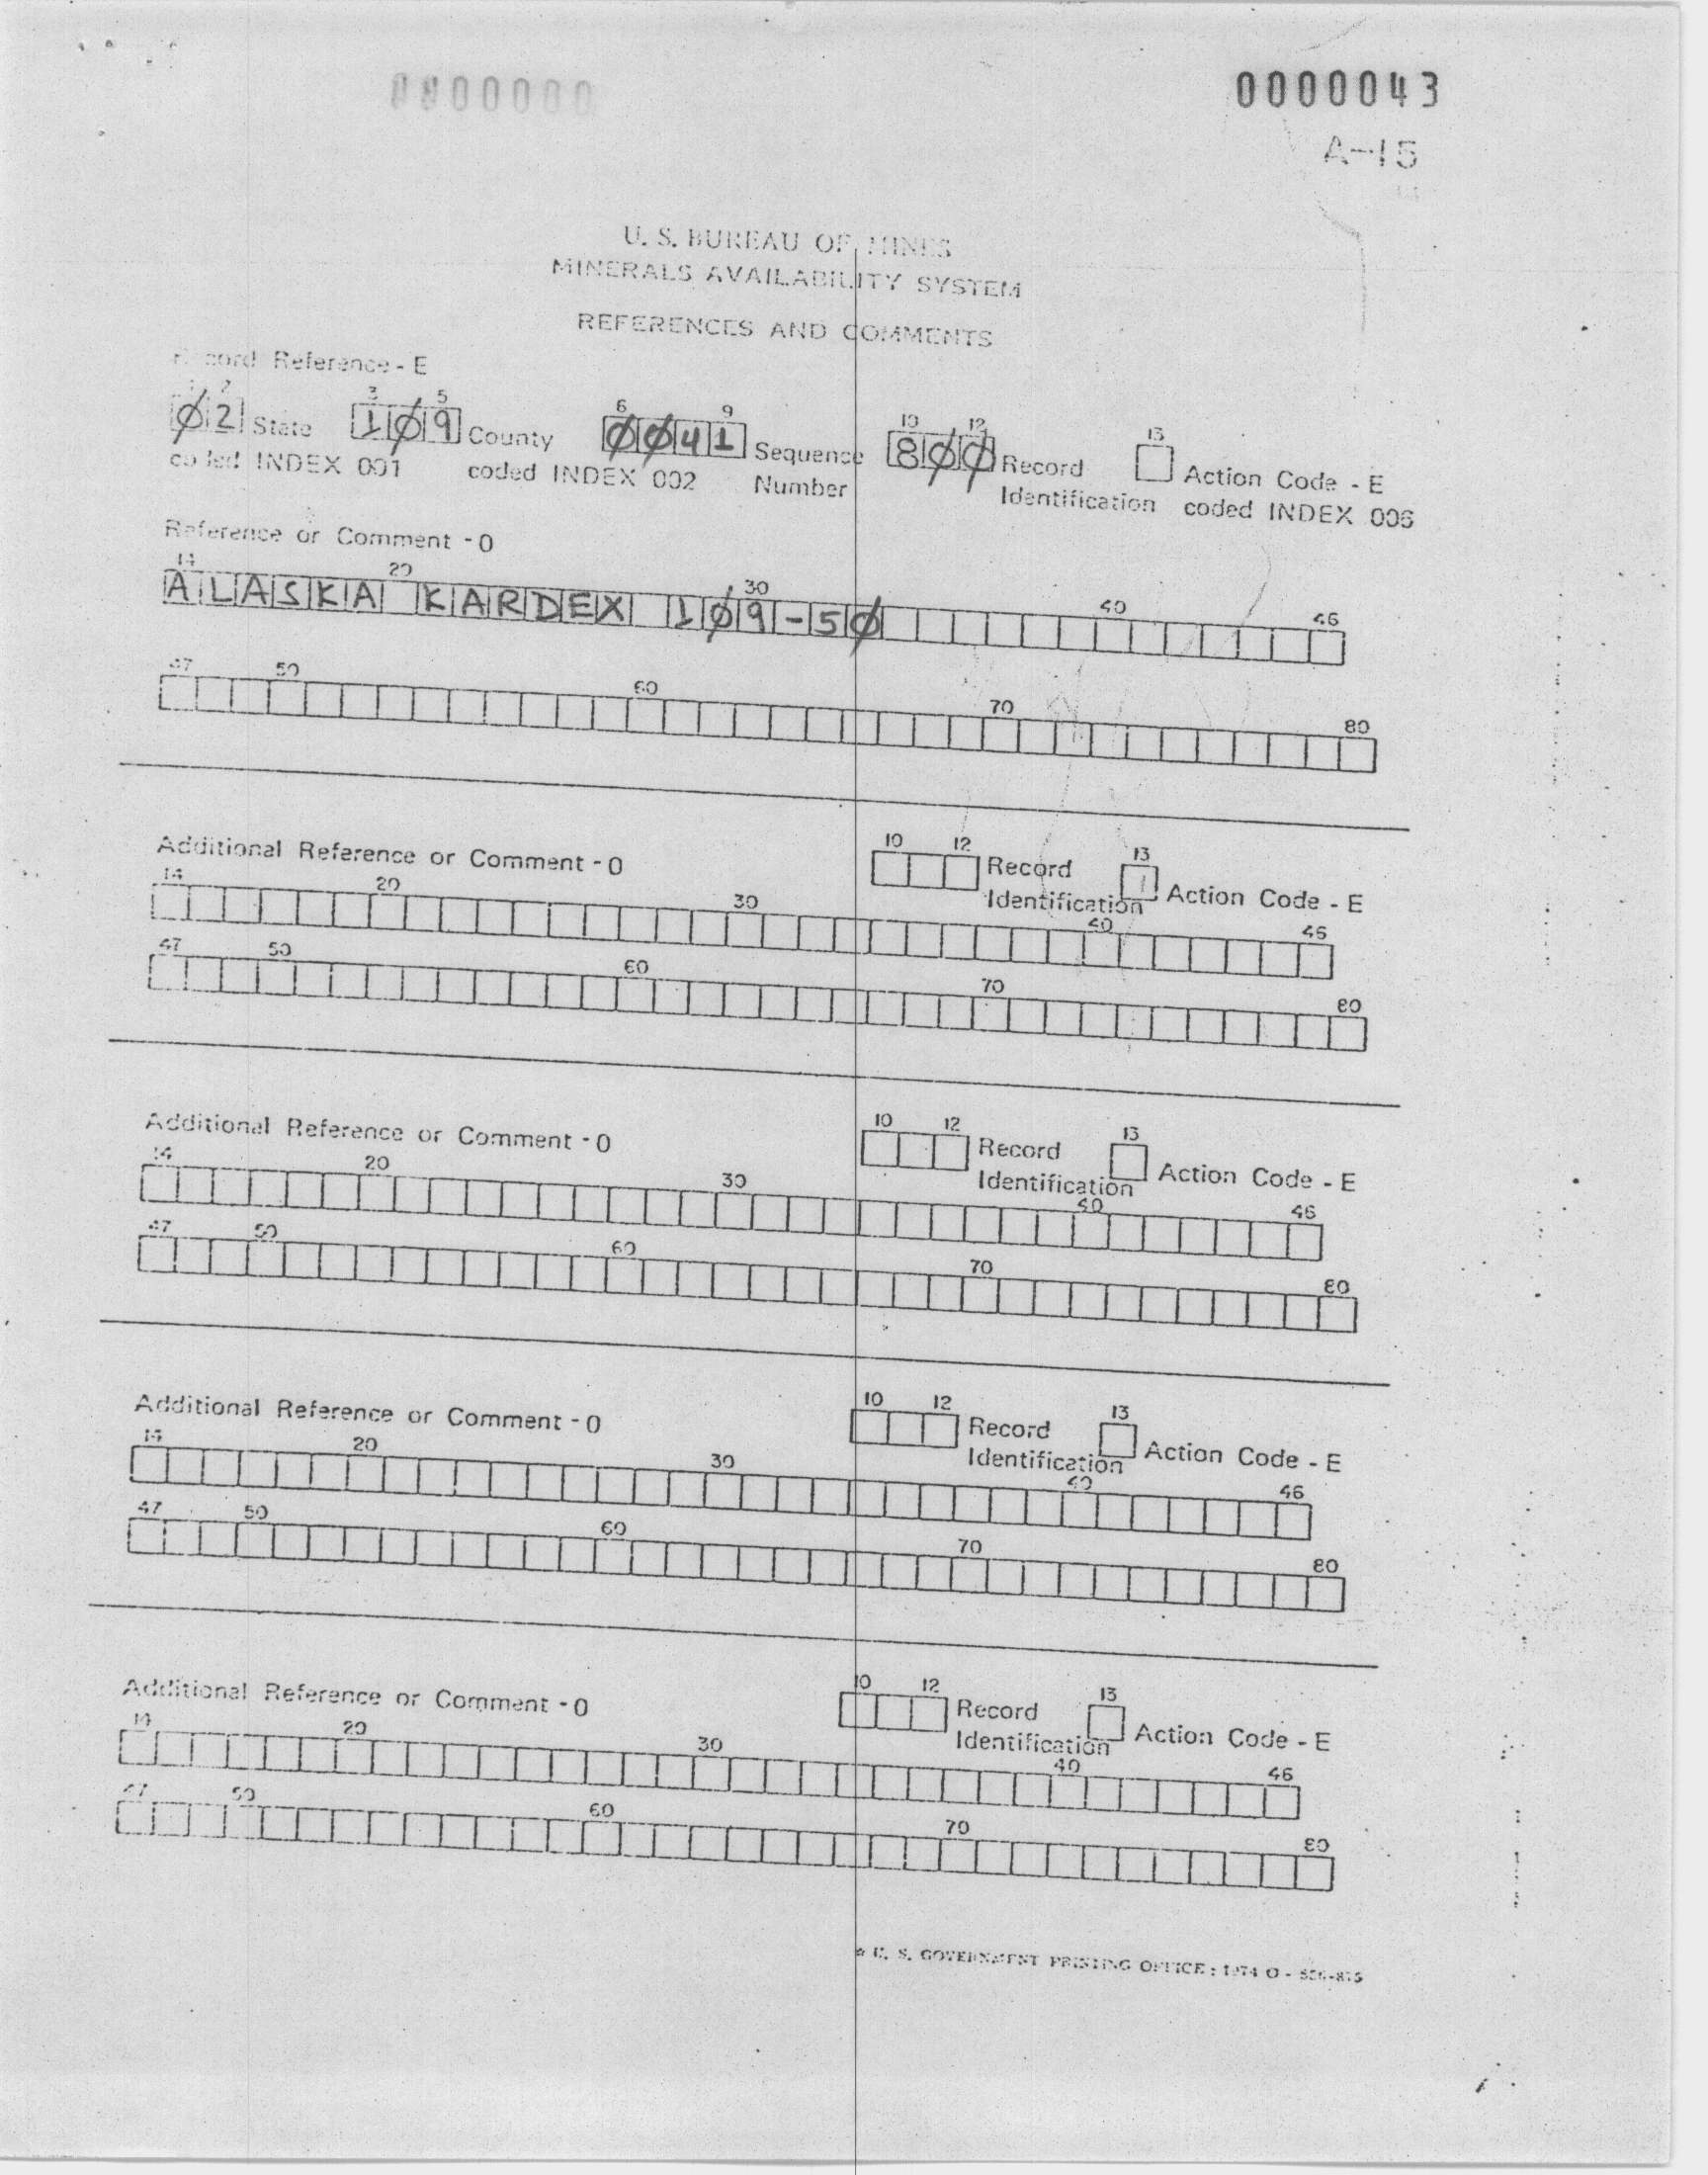 0000000
0000043
A-15
U. S. BUREAU OF MINES
MINERALS AVAILABILITY SYSTEM
REFERENCES AND COMMENTS
Record Reference - E
1 2 3 5 6 9 10 12 13
02 State 109 County 0041 Sequence 800 Record Action Code - E
coded INDEX 001 coded INDEX 002 Number Identification coded INDEX 006
Reference or Comment - O
14 20 30 40 46
ALASKA KARDEX 109-50
47 50 60 70 80
Additional Reference or Comment - O 10 12 Record 13 Action Code - E
Identification
14 20 30 40 46
47 50 60 70 80
Additional Reference or Comment - O 10 12 Record 13 Action Code - E
Identification
14 20 30 40 46
47 50 60 70 80
Additional Reference or Comment - O 10 12 Record 13 Action Code - E
Identification
14 20 30 40 46
47 50 60 70 80
Additional Reference or Comment - O 10 12 Record 13 Action Code - E
Identification
14 20 30 40 46
47 50 60 70 80
☆ U. S. GOVERNMENT PRINTING OFFICE : 1974 O -